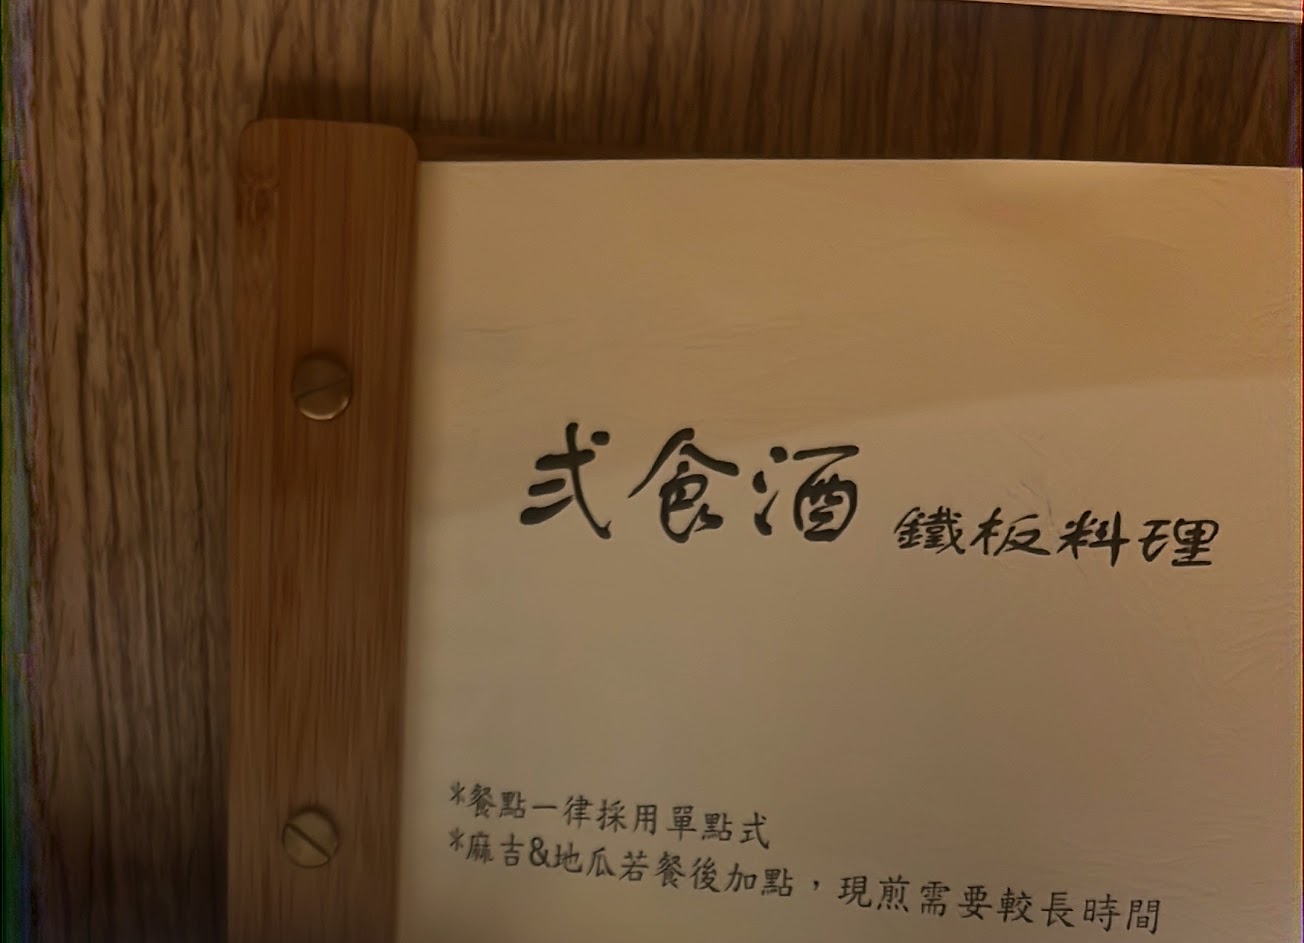 弍食酒 鐵板料理
*餐點一律採用單點式
*麻吉&地瓜若餐後加點，現煎需要較長時間